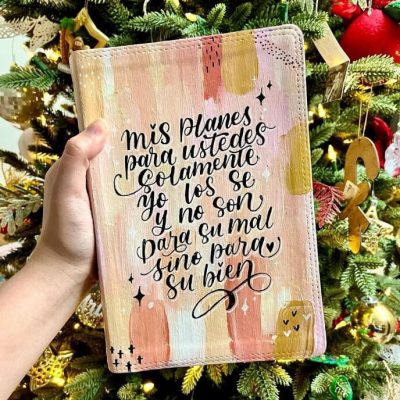 mis planes
para ustedes
solamente
yo los se
y no son
para su mal
sino para
su bien